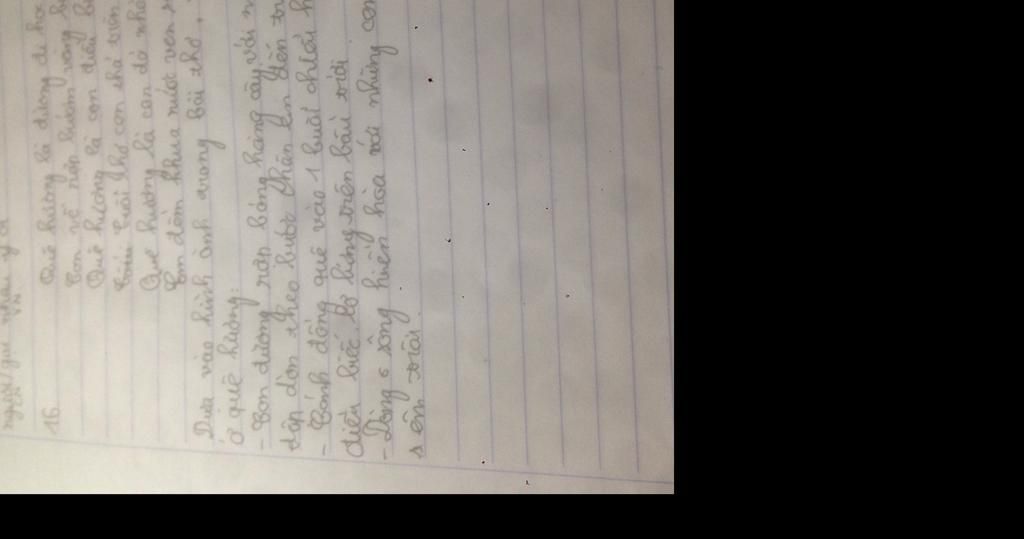 16.
Quê hương là đường đi học
Con về rợp bướm vàng b
Quê hương là con diều bi
Tuổi thơ con thả trên
Quê hương là con đò nhỏ
Êm đềm khua nước ven s
Dựa vào hình ảnh trong bài thơ,
ở quê hương:
- Con đường rợp bóng hàng cây với n
dập dờn theo bước chân em đến tr
- Cánh đồng quê vào 1 buổi chiều h
diều biếc lơ lửng trên bầu trời
- Dòng sông hiền hòa với những con
êm trôi.